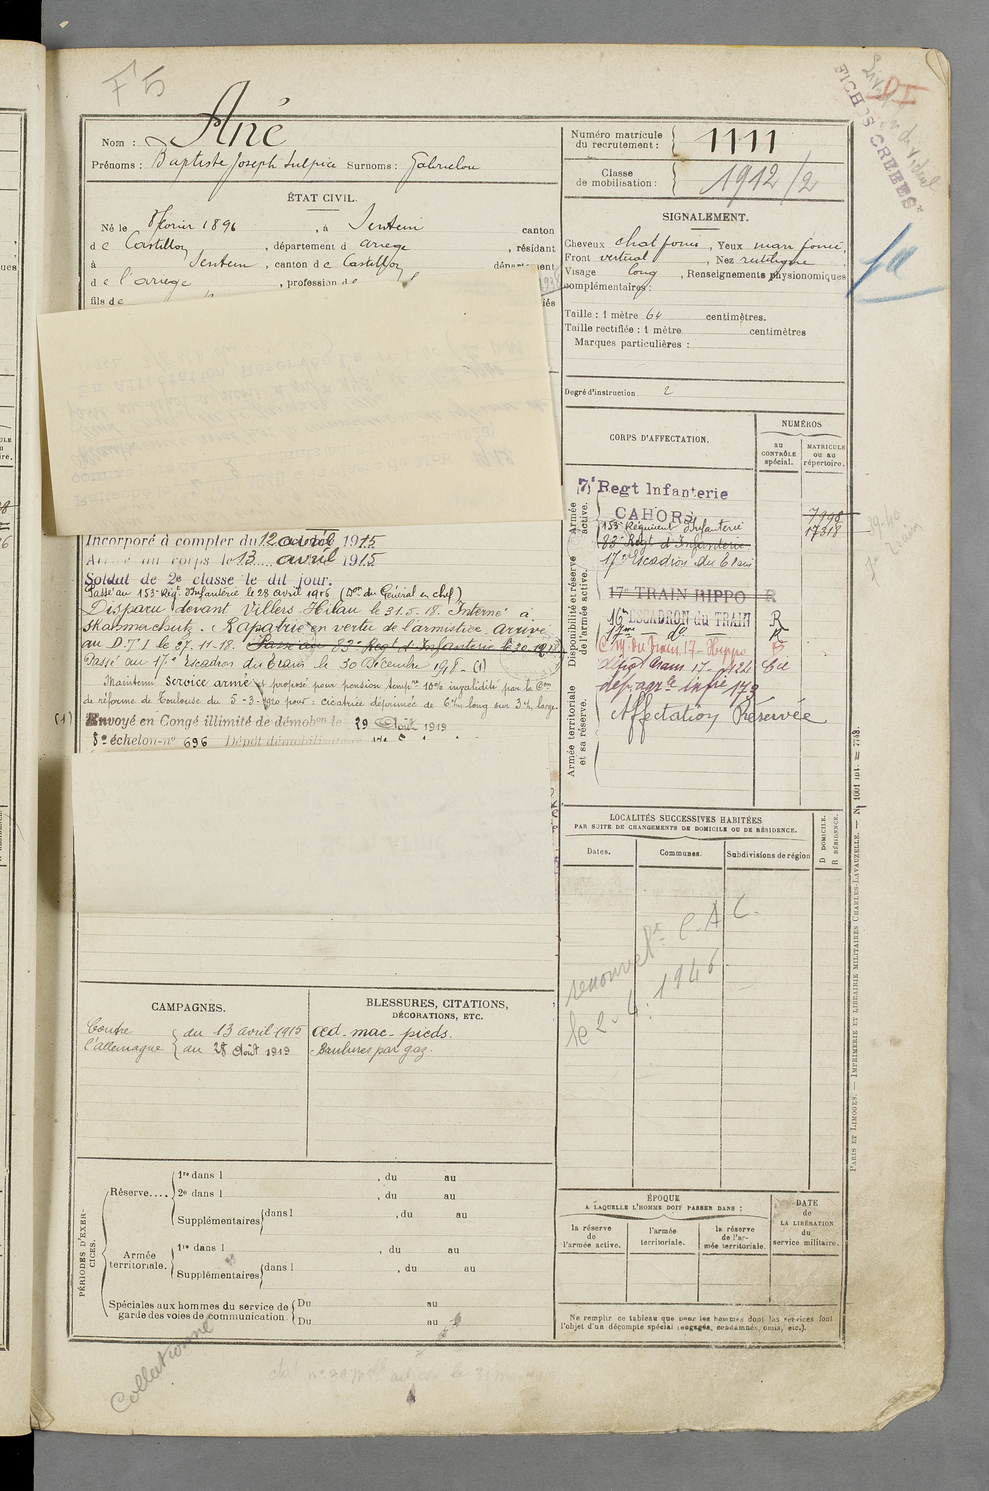 F5
Nom : Ané
Prénoms : Baptiste Joseph Sulpice Surnoms : Gabrielou
Numéro matricule du recrutement : 1111
Classe de mobilisation : 1912/2
FICHES CREEES
ÉTAT CIVIL.
Né le 8 février 1896, à Sentein canton
de Castillon, département d ariege, résidant
à Sentein, canton de Castillon département
de l'ariege, profession de
fils de
SIGNALEMENT.
Cheveux chat foncé, Yeux marr foncé,
Front vertical, Nez rectiligne
Visage long, Renseignements physionomiques
complémentaires :
Taille : 1 mètre 64 centimètres.
Taille rectifiée : 1 mètre centimètres
Marques particulières :
Degré d'instruction. 2
CORPS D'AFFECTATION.
NUMÉROS
au CONTRÔLE spécial.
MATRICULE ou au répertoire.
Armée active.
7e Regt Infanterie
CAHORS
7998
153e Régiment d'Infanterie 17318
83e Regt d'Infanterie
17e Escadron du Train
Disponibilité et réserve de l'armée active.
17e TRAIN HIPPO R
16e ESCADRON du TRAIN R
17eme do R
Cie du Train 17 - Hippo
Armée territoriale et sa réserve.
Affectation Réservée
Incorporé à compter du 12 avril 1915
Arrivé au corps le 13 avril 1915
Soldat de 2e classe le dit jour.
Passé au 153e Régt d'Infanterie le 28 avril 1916 (Don du Général en chef)
Disparu devant Villers-Hélau le 31.5.18. Interné à
Skalmierschutz. Rapatrié en vertu de l'armistice arrivé
au D.T I le 27.11.18. Passé au 83e Regt d'Infanterie le 20.12.18
Passé au 17e Escadron du Train le 30 Décembre 1918 - (1)
Maintenu Service armé et proposé pour pension tempre 10% invalidité par la Con
de réforme de Toulouse du 5-3-1920 pour : cicatrice déprimée de 6c/m long sur 3c/m large.
(1) Envoyé en Congé illimité de démobon le 29 Août 1919
8e échelon-no 696 Dépôt démobilisateur
LOCALITÉS SUCCESSIVES HABITÉES
PAR SUITE DE CHANGEMENTS DE DOMICILE OU DE RÉSIDENCE.
Dates. Communes. Subdivisions de région
D DOMICILE.
R RÉSIDENCE.
C.A C.
le 2-4-1946
CAMPAGNES.
Contre l'Allemagne { du 13 avril 1915
au 28 Août 1919
BLESSURES, CITATIONS,
DÉCORATIONS, ETC.
œd-mac-pieds.
Brulures par gaz.
PÉRIODES D'EXERCICES.
Réserve.... 1re dans l , du au
2e dans l , du au
Supplémentaires dans l , du au
Armée territoriale. 1re dans l , du au
Supplémentaires dans l , du au
Spéciales aux hommes du service de garde des voies de communication. Du au
Du au
ÉPOQUE
A LAQUELLE L'HOMME DOIT PASSER DANS :
la réserve de l'armée active.
l'armée territoriale.
la réserve de l'armée territoriale.
DATE de LA LIBÉRATION du service militaire.
Ne remplir ce tableau que pour les hommes dont les services font
l'objet d'un décompte spécial (engagés, condamnés, omis, etc.).
PARIS ET LIMOGES. — IMPRIMERIE ET LIBRAIRIE MILITAIRES CHARLES-LAVAUZELLE. — N° 1001 int. = 7743.
Collationné